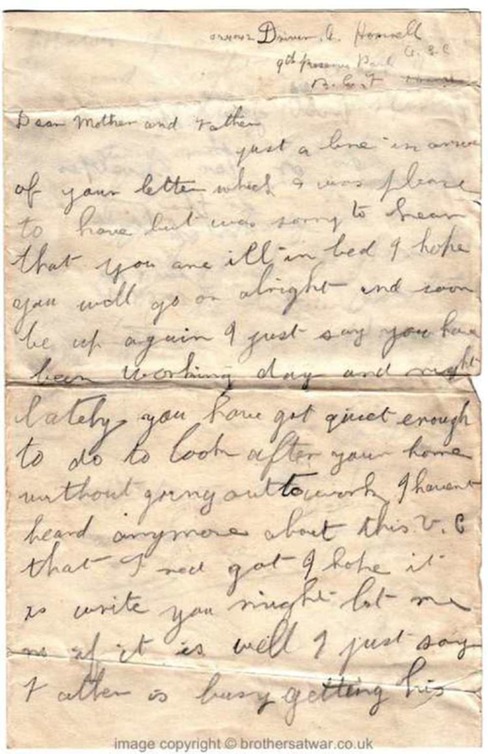 Driver A.
9th Reserve Park A.S.C
B.E.F
Dear Mother and Father
just a line in answe
of your letter which I was please
to have but was sorry to hear
that you are ill in bed I hope
you will go on alright and soon
be up again I just say you have
been working day and night
lately you have got quiet enough
to do to look after your home
without going out to work I havent
heard anymore about this V.C
that got I hope it
is write you might let me
no if it is well I just say
Father is busy getting his
image copyright © brothersatwar.co.uk